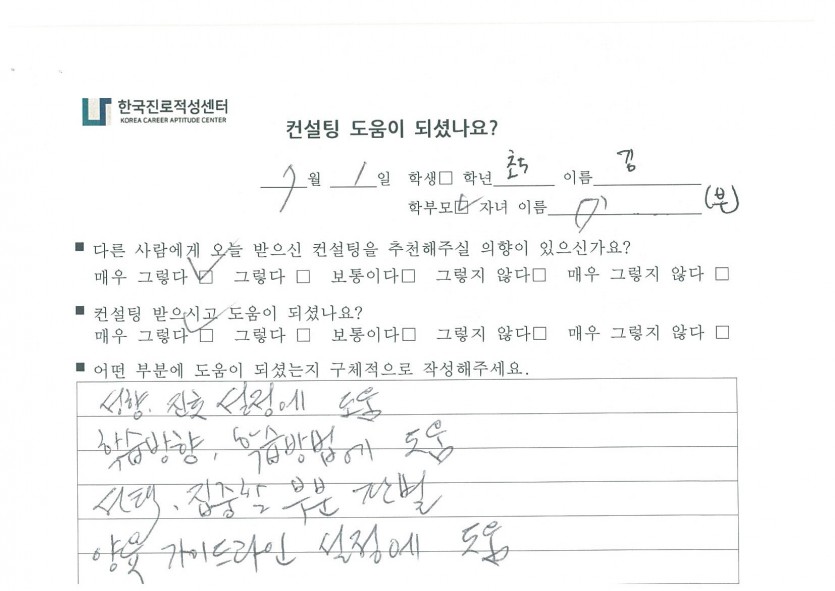 한국진로적성센터
KOREA CAREER APTITUDE CENTER
컨설팅 도움이 되셨나요?
7월 1일 학생□ 학년 초5 이름 김
학부모☑ 자녀 이름 (부)
■ 다른 사람에게 오늘 받으신 컨설팅을 추천해주실 의향이 있으신가요?
매우 그렇다 ☑ 그렇다 □ 보통이다□ 그렇지 않다□ 매우 그렇지 않다 □
■ 컨설팅 받으시고 도움이 되셨나요?
매우 그렇다 ☑ 그렇다 □ 보통이다□ 그렇지 않다□ 매우 그렇지 않다 □
■ 어떤 부분에 도움이 되셨는지 구체적으로 작성해주세요.
성향, 진로 설정에 도움
학습방향, 학습방법에 도움
선택, 집중할 부분 판별
양육 가이드라인 설정에 도움